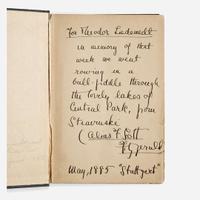 For Theodor Liedemedt
in memory of that
week we went
rowing in a
bull-fiddle through
the lovely lakes of
Central Park, from
Stravinski
(Alias F Scott
Fitzgerald
May, 1885 "Stuttgart"